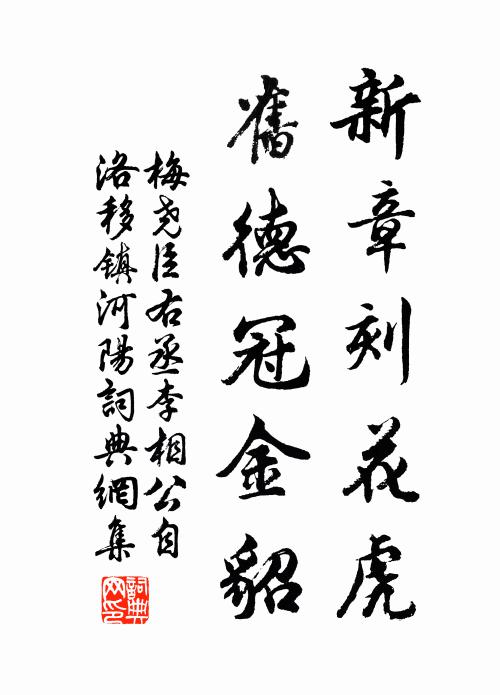 新章刻花虎
舊德冠金貂
梅堯臣右丞李相公自
洛移鎮河陽詞典網集
詞典
网印